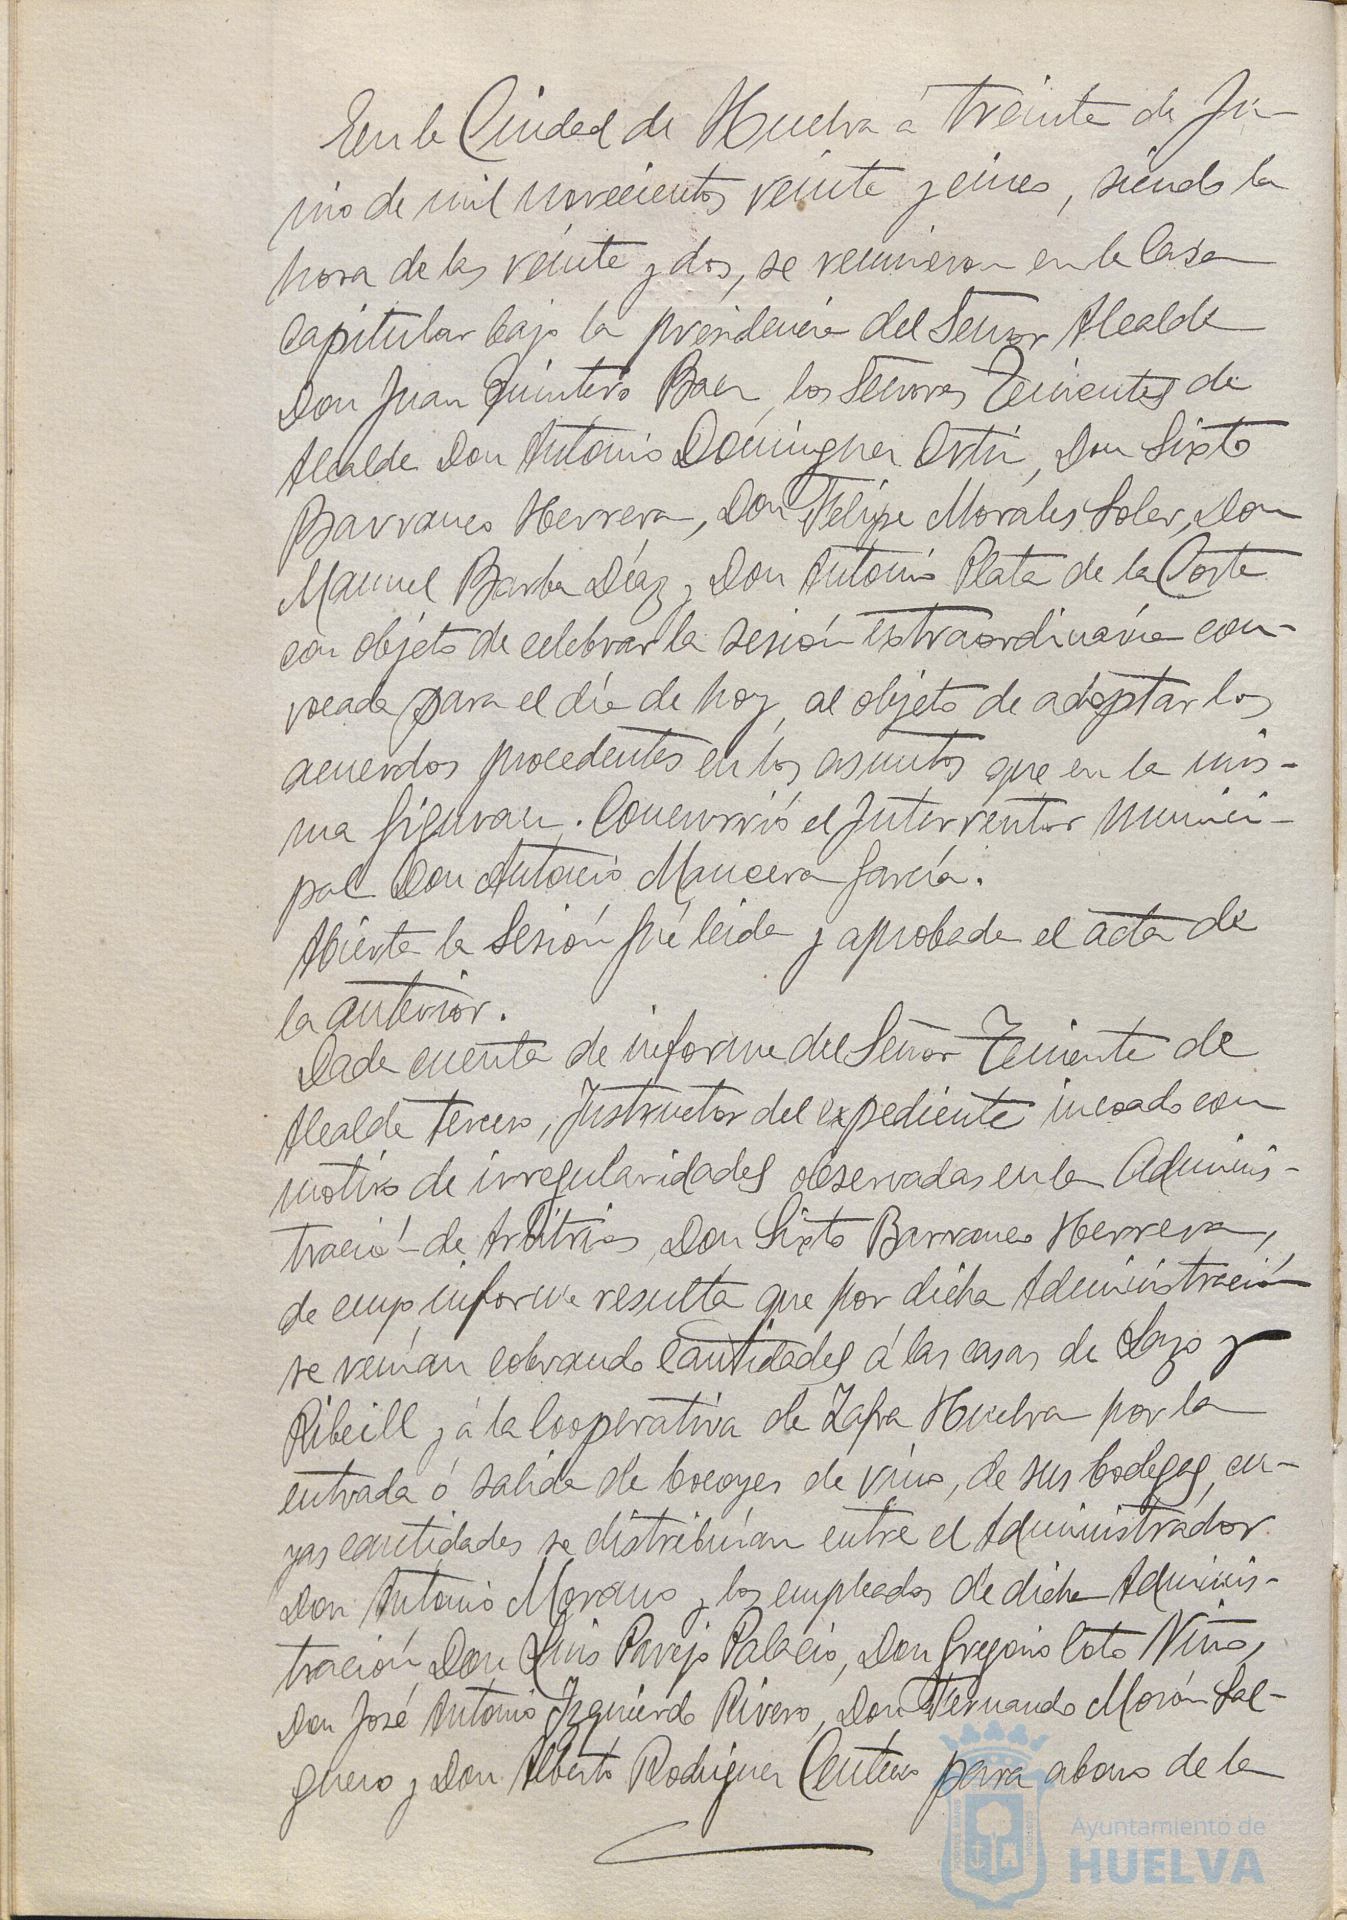 En la Ciudad de Huelva á treinta de Ju-
nio de mil novecientos veinte y cinco, siendo la
hora de las veinte y dos, se reunieron en la Casa
Capitular bajo la presidencia del Señor Alcalde
Don Juan Quintero Baez, los Señores Tenientes de
Alcalde Don Antonio Dominguez Ortiz, Don Sixto
Barranco Herrera, Don Felipe Morales Soler, Don
Manuel Barba Díaz y Don Antonio Plata de la Corte
con objeto de celebrar la sesión extraordinaria con-
vocada para el día de hoy, al objeto de adoptar los
acuerdos procedentes en los asuntos que en la mis-
ma figuran. Concurrió el Interventor Munici-
pal Don Antonio Mancera García.
Abierta la Sesión fué leida y aprobada el acta de
la anterior.
Dada cuenta de informe del Señor Teniente de
Alcalde tercero, Instructor del expediente incoado con
motivo de irregularidades observadas en la Adminis-
tración de Arbitrios, Don Sixto Barranco Herrera,
de cuyo informe resulta que por dicha Administración
se venían cobrando cantidades á las casas de Lazo y
Ribeill y á la Cooperativa de Zafra Huelva por la
entrada ó salida de bocoyes de vino, de sus bodegas, cu-
yas cantidades se distribuían entre el Administrador
Don Antonio Morano y los empleados de dicha Adminis-
tración, Don Luis Parejo Palacio, Don Gregorio Coto Niño,
Don José Antonio Izquierdo Rivero, Don Fernando Morón Sal-
guero y Don Alberto Rodriguez Centeno para abono de la
Ayuntamiento de
HUELVA